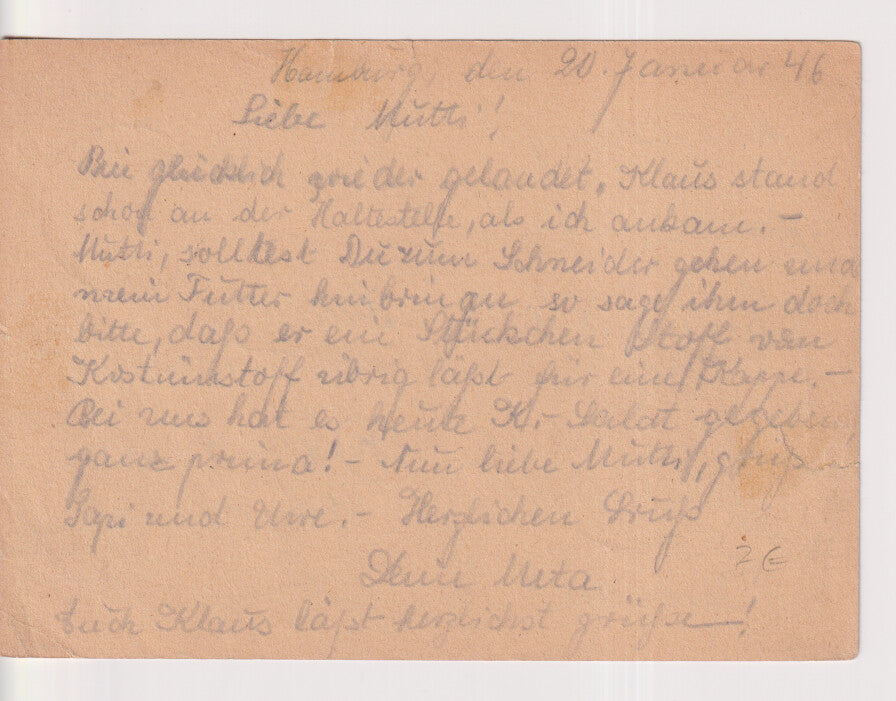 Hamburg, den 20. Januar 46
Liebe Mutti!
Bin glücklich wieder gelandet, Klaus stand
schon an der Haltestelle, als ich ankam. –
Mutti, solltest Du zum Schneider gehen und
mein Futter hinbringen so sage ihm doch
bitte, daß er ein Stückchen Stoff vom
Kostümstoff übrig läßt für eine Kappe. –
Bei uns hat es heute K.- Salat gegeben,
ganz prima! – Nun liebe Mutti, grüße
und Uwe. – Herzlichen Gruß
Deine Meta
2 €
Euch Klaus läßt herzlichst grüßen!